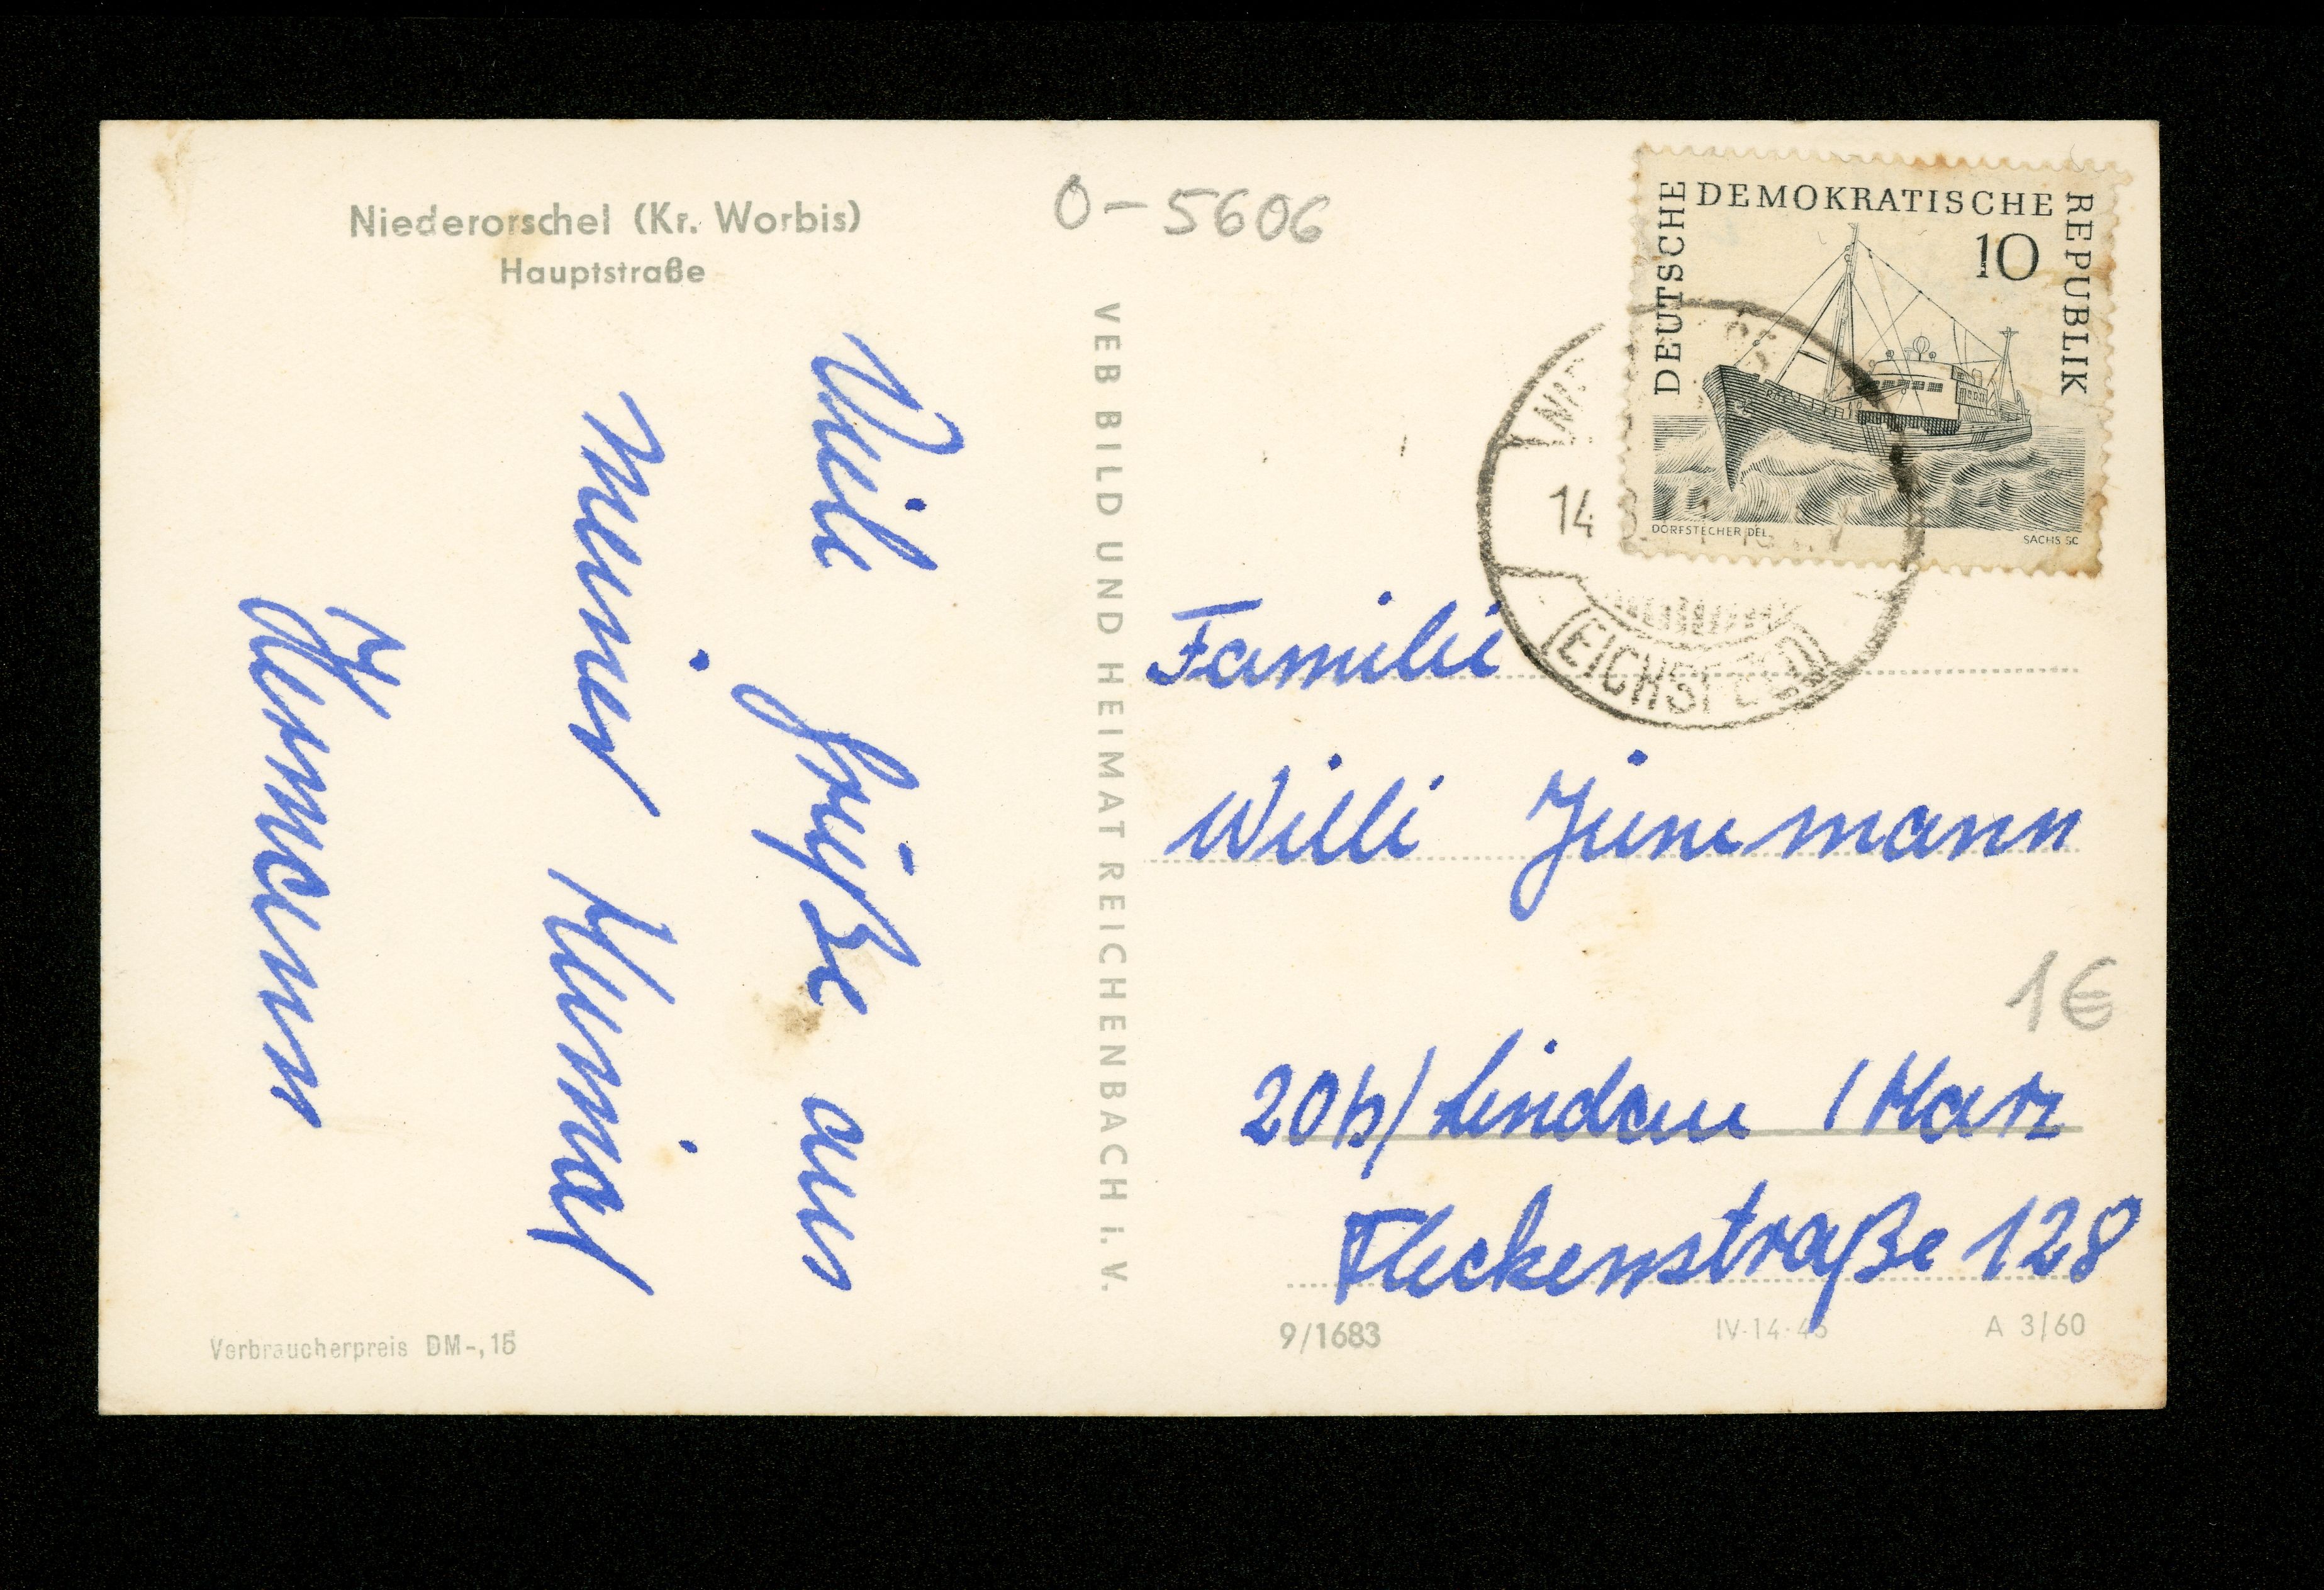 Niederorschel (Kr. Worbis)
Hauptstraße
Viele Grüße aus
meiner Heimat
Hermann
Verbraucherpreis DM-,15
VEB BILD UND HEIMAT REICHENBACH i. V.
0-5606
DEUTSCHE DEMOKRATISCHE REPUBLIK
10
DORFSTECHER DEL.
SACHS SC
14
EICHSFELD
Familie
Willi Jünemann
1€
20b/ Lindau / Harz
Fleckenstraße 128
9/1683
IV-14-45
A 3/60